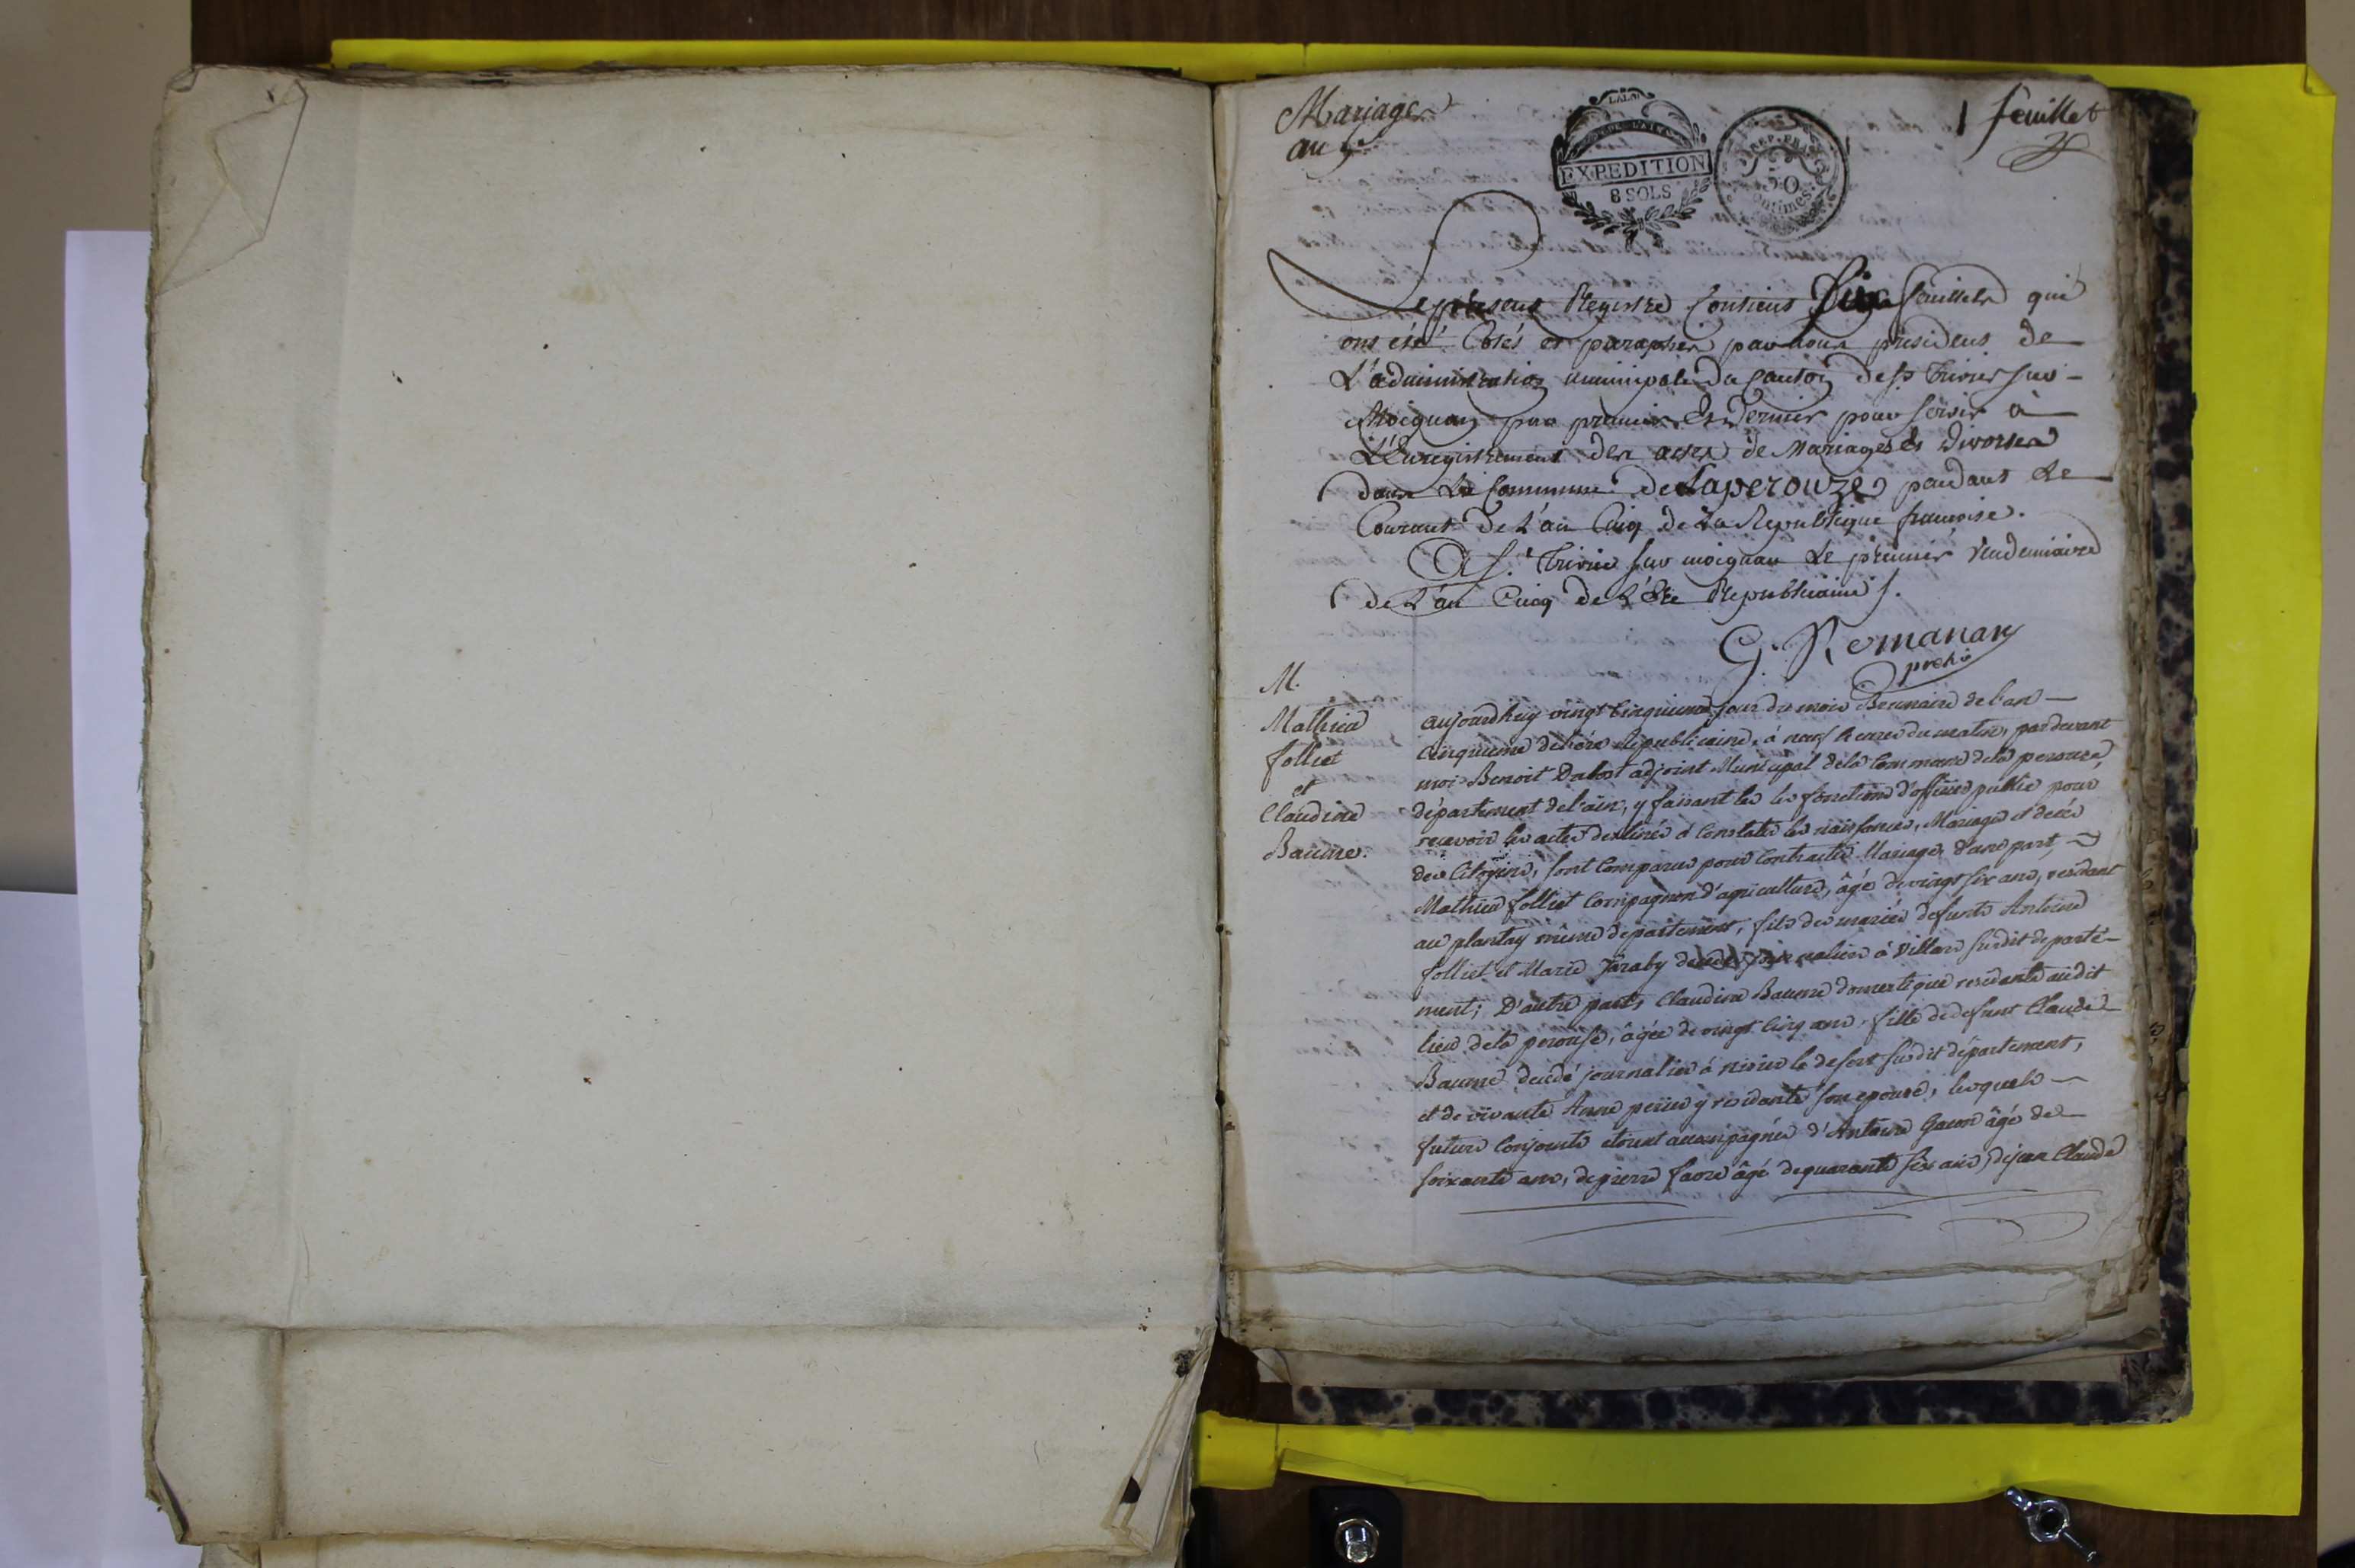 Mariages
an 5.e
1 feuillet
EXPEDITION
8 SOLS
REP. FRA
50
centimes
Le present Registre Contient Six feuillets qui
ont été Cotés et paraphés par nous président de
L'administration municipale du Canton de St Trivier sur
Moignan par premier Et Dernier pour servir à
L'Enregistrement des actes de Mariages et Divorses
dans La Commune de Laperouze pendant Le
Courant de L'an Cinq de La Republique francoise.
A St. Trivier sur moignan Le premier Vendemiaire
de L'an Cinq de L'Ere Republicaine
G. Remanan
M.
Mathieu
folliet
et
Claudine
Baume.
aujourdhuy vingt Cinquieme jour du mois Brumaire de l'an
Cinquieme de l'ére Republicaine, à neuf heures du matin, pardevant
moi Benoit Dabost adjoint Municipal de la Commune de la perouze,
département de l'ain, y faisant les les fonctions d'officier public pour
recevoir les actes destinés à Constater les naissances, Mariages et decés
des Citoyens, sont Comparus pour Contracter Mariage, d'une part,
Mathieu folliet Compagnon d'agriculture, âgé de vingt six ans, residant
au plantay même departement, fils des mariés defunts Antoine
folliet et Marie Jaraby à Villars susdit departe-
ment; D'autre parts Claudine Baume domestique residante audit
lieu de la perouse, âgée de vingt Cinq ans, fille de defunt Claude
Baume decedé journalier à le desert susdit département,
et de vivante Anne y residante son epouse, lesquels
futurs Conjoints etoient accompagnés d'Antoine Gacon âgé de
soixante ans, de pierre favre âgé de quarante six ans, de jean Claude